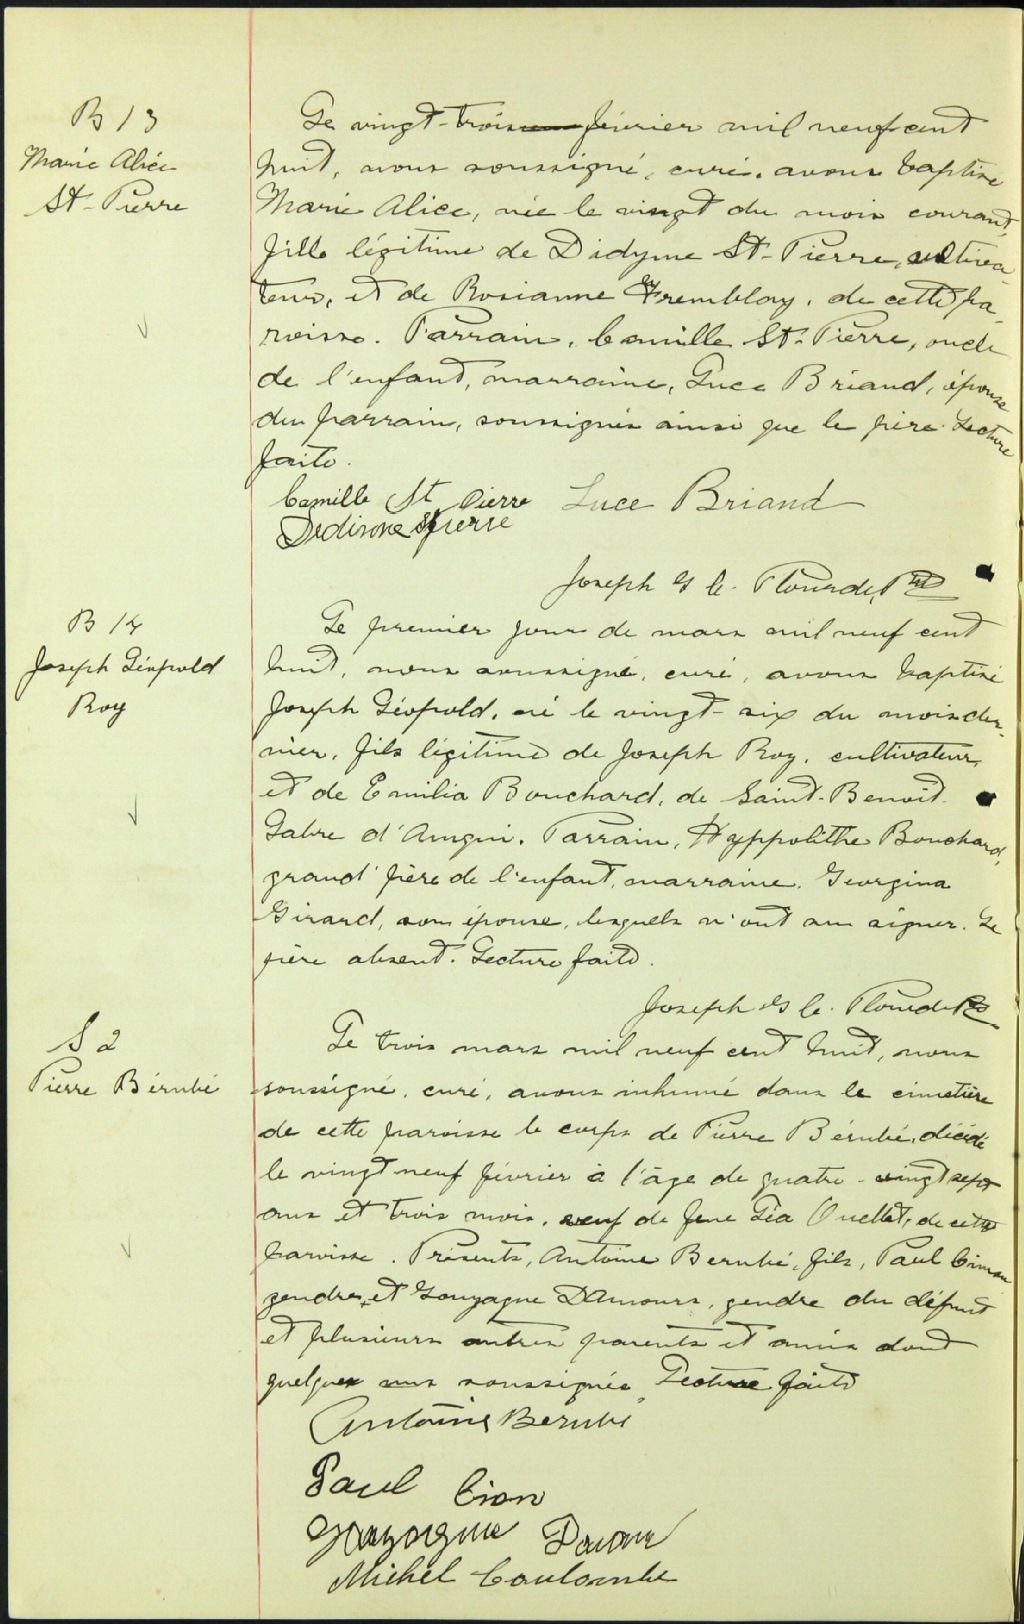 B 13
Marie Alice
St-Pierre
Le vingt-trois février mil neuf cent
huit, nous soussigné, curé, avons baptisé
Marie Alice, née le vingt du mois courant,
fille légitime de Didyme St-Pierre, cultiva-
teur, et de Rosianne Tremblay, de cette pa-
roisse. Parrain, Camille St-Pierre, oncle
de l'enfant, marraine, Luce Briand, épouse
du parrain, soussignés ainsi que le père. Lecture
faite.
Camille St Pierre Luce Briand
Dedisme St pierre
Joseph Plourde, Ptre
B 14
Joseph Léopold
Roy
Le premier jour de mars mil neuf cent
huit, nous soussigné, curé, avons baptisé
Joseph Léopold, né le vingt-six du mois der-
nier, fils légitime de Joseph Roy, cultivateur,
et de Emilia Bouchard, de Saint-Benoit
Labre d'Amqui. Parrain, Hyppolithe Bouchard,
grand'père de l'enfant, marraine, Georgina
Girard, son épouse, lesquels n'ont su signer. Le
père absent. Lecture faite.
Joseph Plourde Ptre
S 2
Pierre Bérubé
Le trois mars mil neuf cent huit, nous
soussigné, curé, avons inhumé dans le cimetière
de cette paroisse le corps de Pierre Bérubé, décédé
le vingt neuf février à l'âge de quatre-vingt sept
ans et trois mois, veuf de feue Léa Ouellet, de cette
paroisse. Présents, Antoine Berubé, fils, Paul
gendre, et Gonzague D'Amours, gendre du défunt
et plusieurs autres parents et amis dont
quelques uns soussignés Lecture faite
Antoine Berubé
Paul Cion
Gonzague
Michel Coulombe